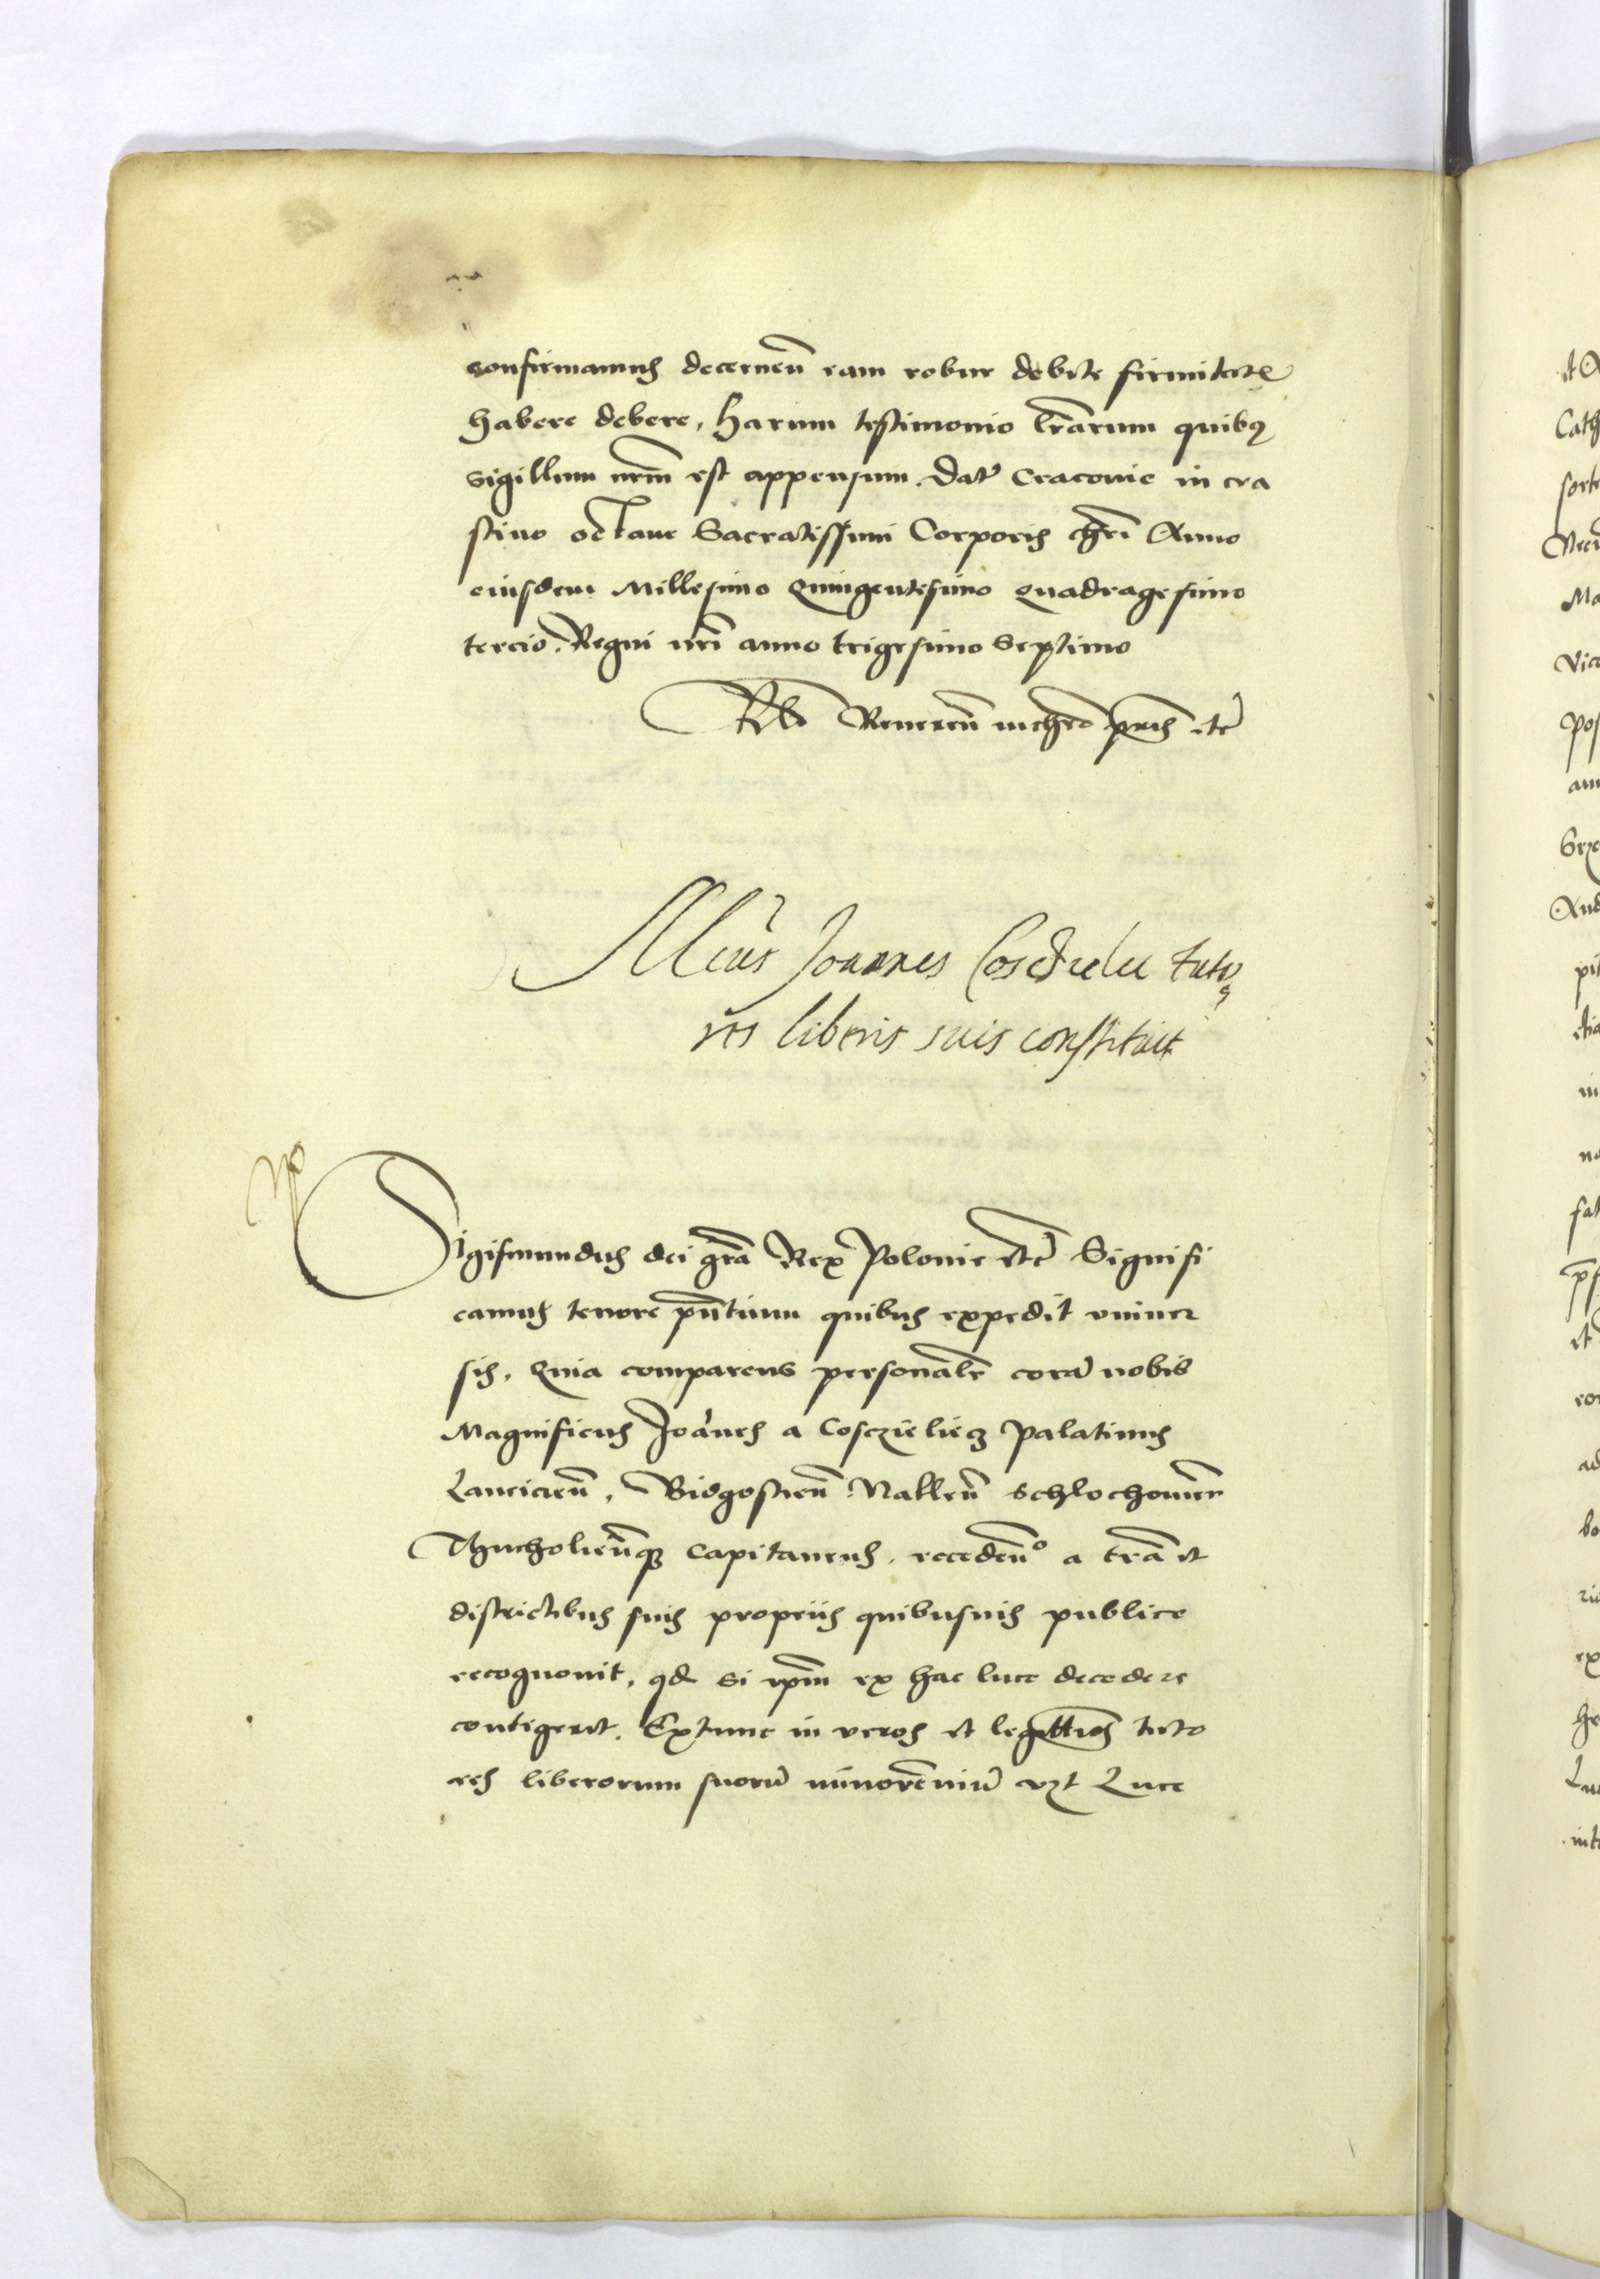 confirmamus decernen̄ eam robur debite firmitatis
habere debere, Harum testimonio lr̄arum quibus
sigillum nr̄m est appensum. Dat̄ Cracovie in cra
stino octave Sacratissimi Corporis chrī Anno
eiusdem Millesimo Quingentesimo quadragesimo
tercio. Regni nr̄i anno trigesimo septimo
Reveren̄ etc̄
Joannes tuto
res liberis suis constituit
Sigismundus dei gr̄a Rex Polonie etc̄ Signifi
camus tenore pn̄tium quibus expedit univer
sis, Quia comparens personalr̄ corā nobis
Magnificus Joānes a Cosczieliecz Palatinus
Lancicien̄, Bidgostien̄ Naklen̄ Schlochovien̄
Thucholien̄que Capitaneus, receden̄º a tr̄a et
districtibus suis propriis quibusuis publice
recognovit, qd si ipm̄ ex hac luce decedere
contigerit, Extunc in veros et legittios̄ tuto
res liberorum suorū minorēniū vzt Luce
it
Cath
Ma
pos